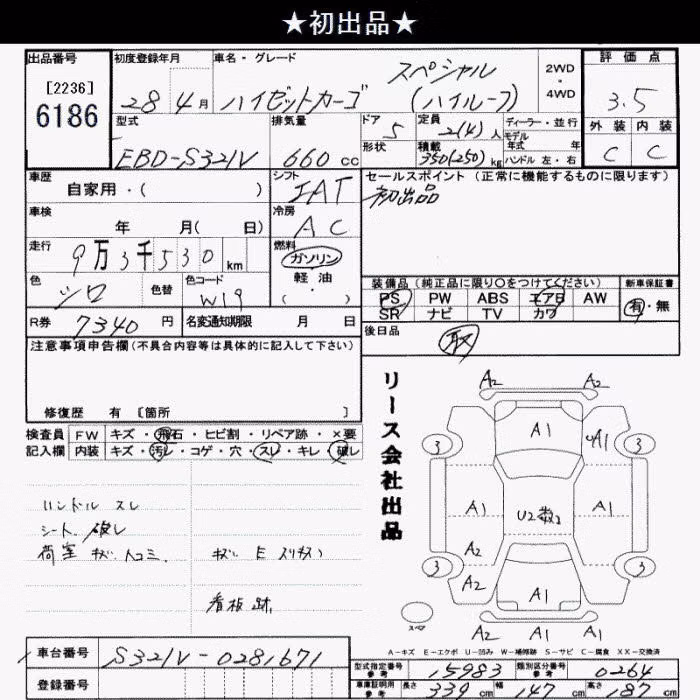 ★初出品★
出品番号
[2236]
6186
初度登録年月
28年4月
車名・グレード
ハイゼットカーゴ
スペシャル
(ハイルーフ)
2WD
・
4WD
評価点
3.5
外装 内装
C C
型式
EBD-S321V
排気量
660 cc
ドア 5
形状
定員 2(4)人
積載 350(250)kg
ディーラー・並行
モデル
年式 年
ハンドル 左・右
車歴
自家用・( )
シフト
IAT
冷房
AC
セールスポイント(正常に機能するものに限ります)
初出品
車検
年 月( 日)
走行
9万3千530 km
燃料
ガソリン
軽油
( ・ )
色
シロ
色替
色コード
W19
装備品(純正品に限り○をつけてください)
PS PW ABS エアB AW
SR ナビ TV カワ
新車保証書
有・無
R券 7340円
名変通知期限 月 日
後日品
取
注意事項申告欄(不具合内容等は具体的に記入して下さい)
修復歴 有 [箇所 ]
検査員
記入欄
FW キズ・飛石・ヒビ割・リペア跡・×要
内装 キズ・汚レ・コゲ・穴・スレ・キレ・破レ
ハンドル スレ
シート 破レ
荷室 キズ、凹コミ、
キズ
看板跡
リース会社出品
A2 A2
A1
3 A1 3
A1 U2数2 A1
A2
3 A2 A1 3
A2 A1 A1
スペア
A-キズ E-エクボ U-凹み W-補修跡 S-サビ C-腐食 XX-交換済
車台番号 S321V-0281671
登録番号
型式指定番号
参考
15983
類別区分番号
参考
0264
車庫証明用
参考
長さ 339cm 幅 147cm 高さ 187cm